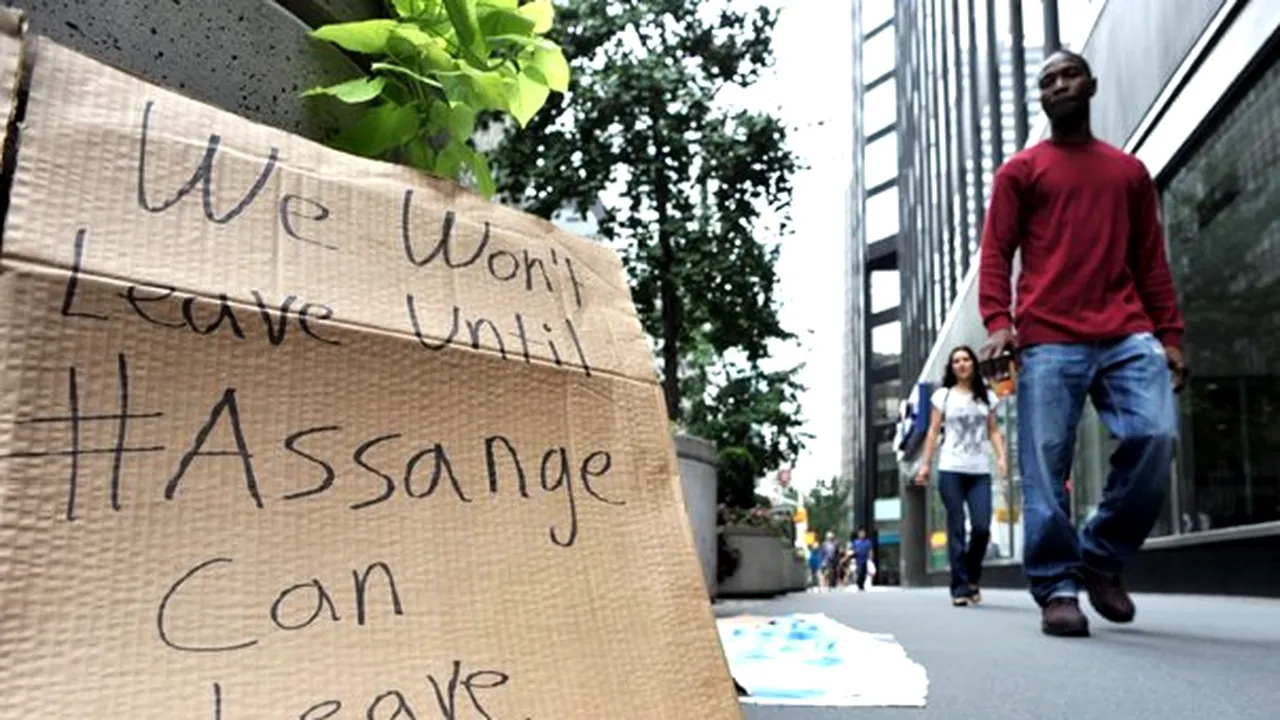 We Won't
Leave Until
#Assange
Can
Leave